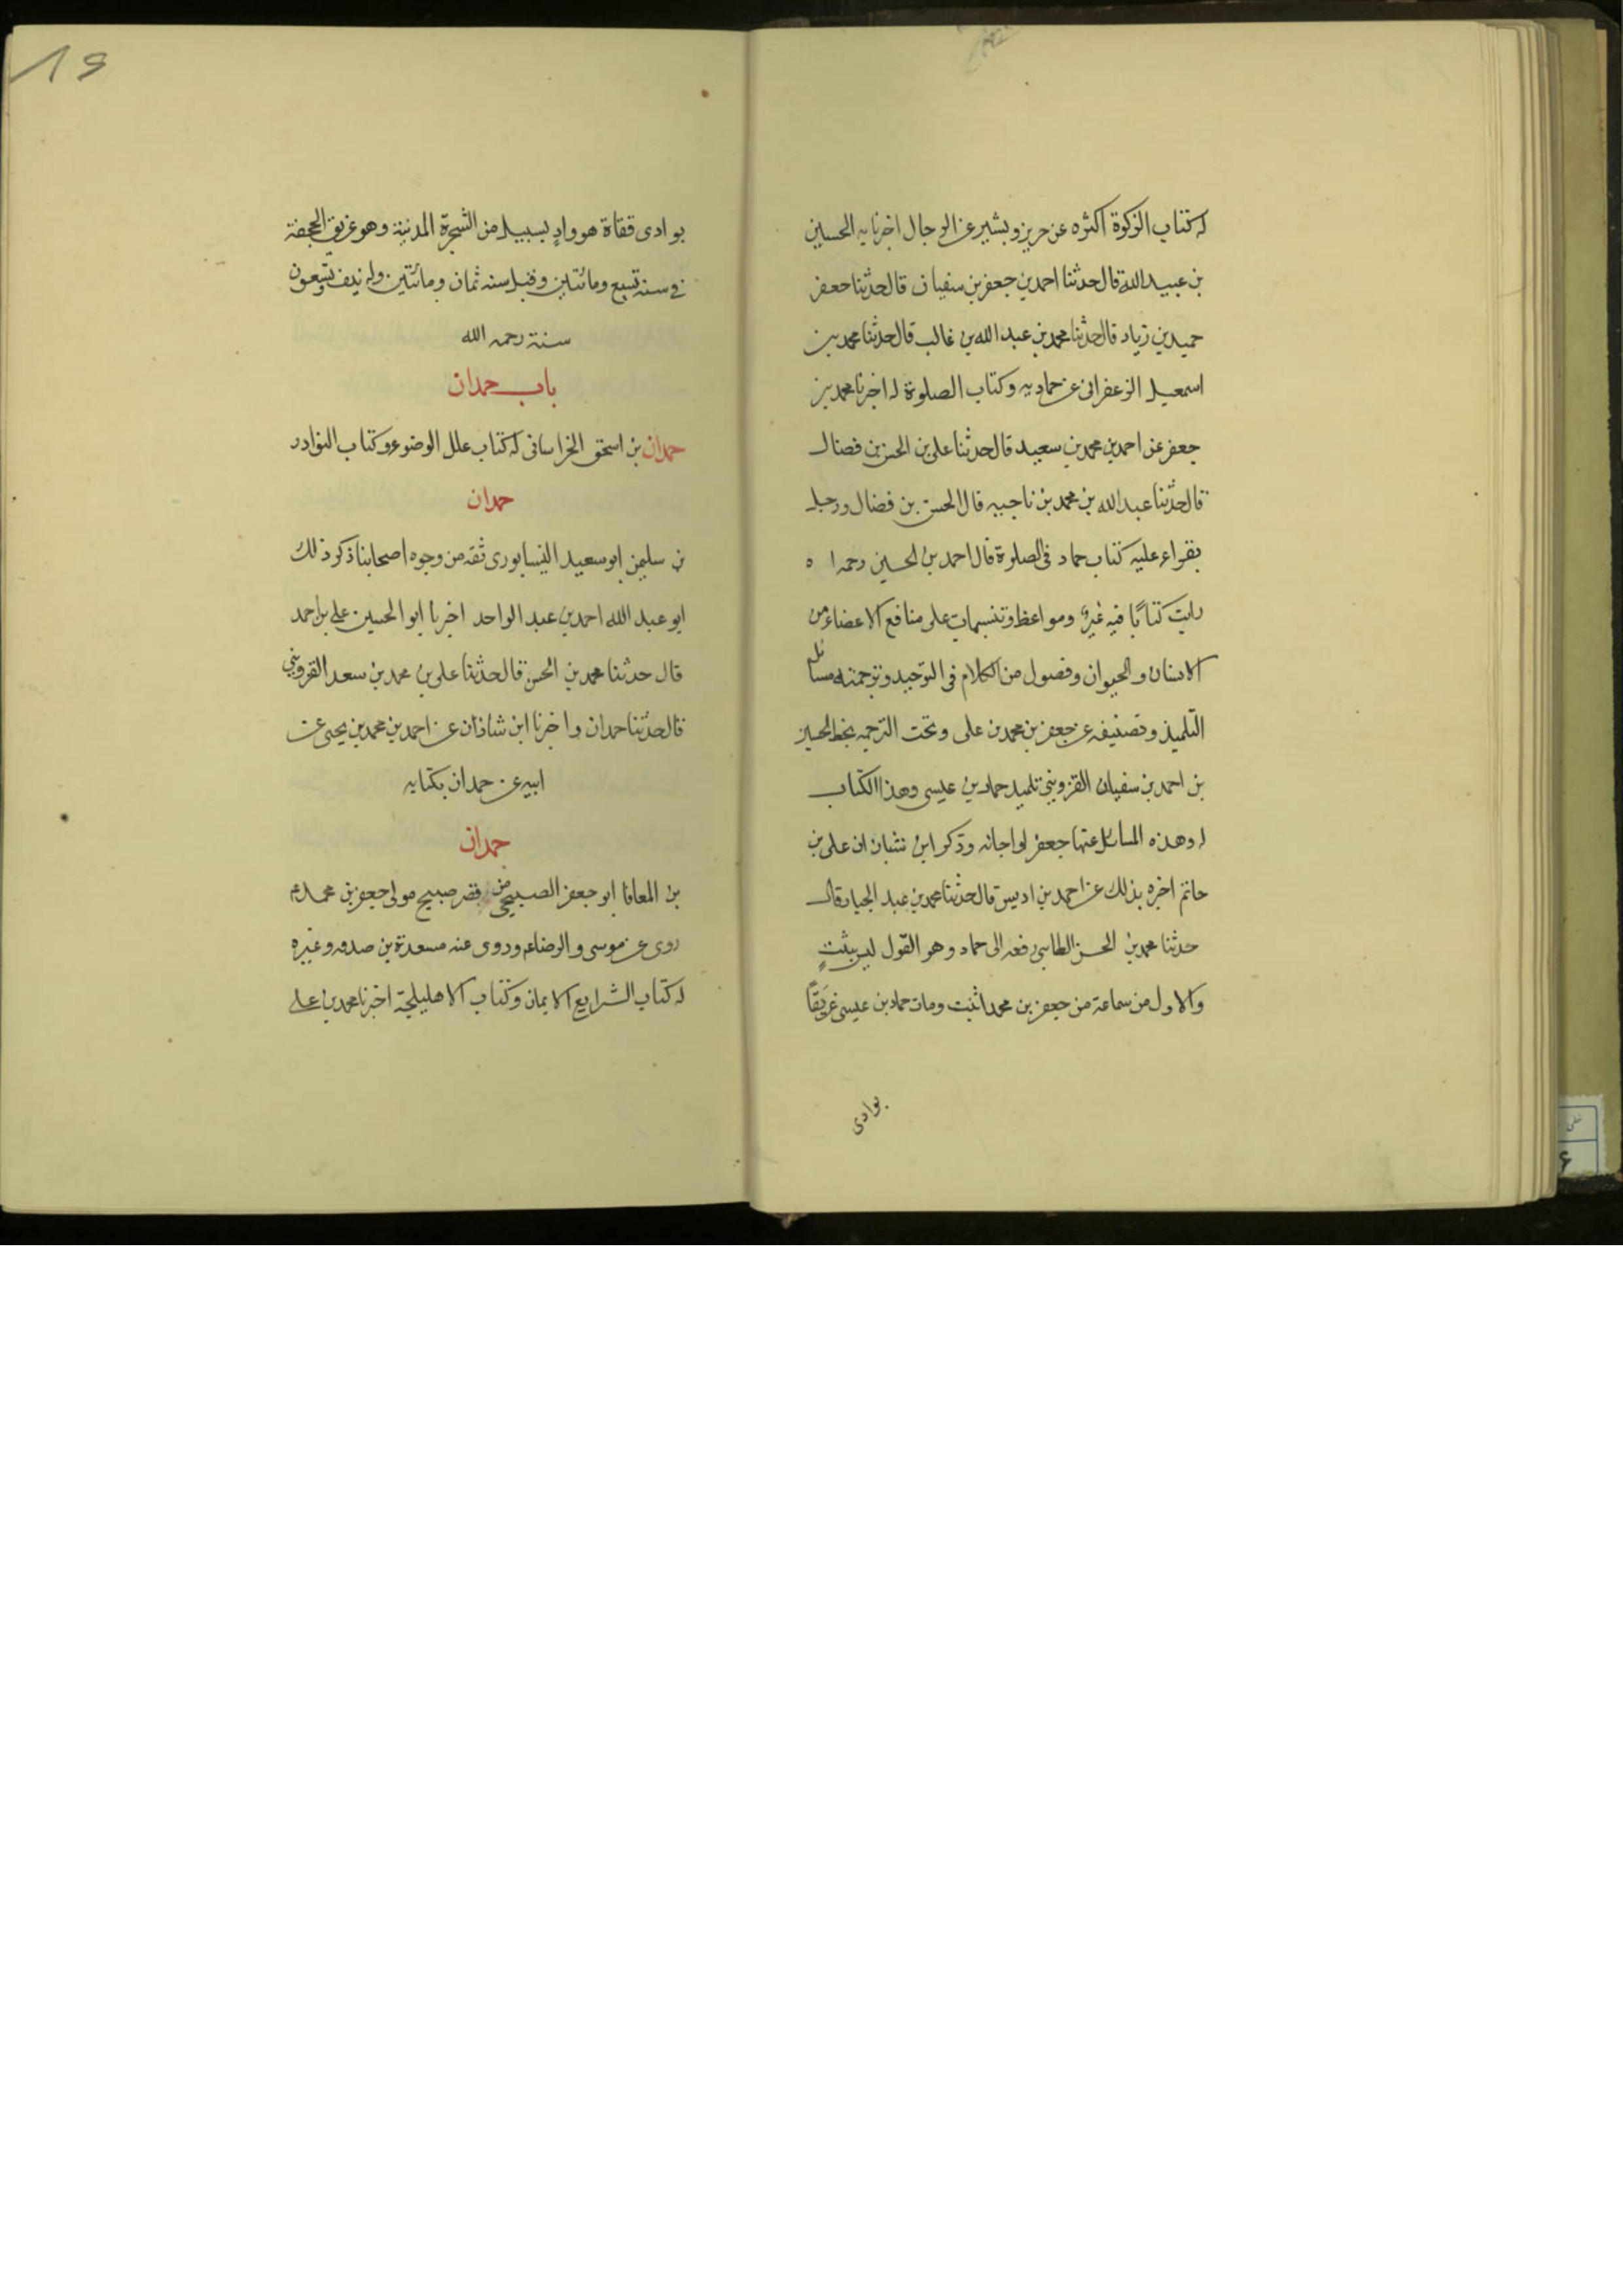 له كتاب الزكوة اكثره عن حريز و بشير عن الرجال اخبرنا به الحسين
بن عبيد الله قال حدثنا احمد بن جعفر بن سفيان قال حدثنا جعفر
حميد بن زياد قال حدثنا محمد بن عبد الله بن غالب قال حدثنا محمد بن
اسمعيل الزعفرانى عن حماد به وكتاب الصلوة له اخبرنا محمد بن
جعفر عن احمد بن محمد بن سعيد قال حدثنا على بن الحسن بن فضال
قال حدثنا عبد الله بن محمد بن ناجيه قال الحسن بن فضال ورجل
يقراء عليه كتاب حماد فى الصلوة قال احمد بن الحسين رحمه ا ه
رايت كتابًا فيه عبر ومواعظ وتنبيهات على منافع الاعضاء من
الانسان والحيوان وفصول من الكلام فى التوحيد وترجمته مسائل
التلميذ وتصنيفه عن جعفر بن محمد بن على وتحت الترجمه بخط الحسين
بن احمد بن سفيان القزوينى تلميذ حماد بن عيسى وهذا الكتاب
له وهذه المسائل عنها جعفر لو اجابه وذكر ابن شبان ان على بن
حاتم اخبره بذلك عن احمد بن ادريس قال حدثنا محمد بن عبد الجبار قال
حدثنا محمد بن الحسن الطايى رفعه الى حماد وهو القول ليس بثبتٍ
والاول من سماعة من جعفر بن محمد اثبت ومات حماد بن عيسى غريقًا
بوادى
١٥
بوادى قفاة هو وادٍ يسيل من الشجرة المدنية وهو غريق الجحفة
فى سنة تسع ومائتين وقيل سنه ثمان ومائتين وله نيف وتسعون
سنة رحمه الله
باب حمدان
حمدان بن اسحق الخراسانى له كتاب علل الوضوء وكتاب النوادر
حمدان
بن سليمن ابو سعيد النيسابورى ثقه من وجوه اصحابنا ذكر ذلك
ابو عبد الله احمد بن عبد الواحد اخبرنا ابو الحسين على بن احمد
قال حدثنا محمد بن الحسن قال حدثنا على بن محمد بن سعد القزوينى
قال حدثنا حمدان واخبرنا ابن شاذان عن احمد بن محمد بن يحيى عن
ابيه عن حمدان بكتابه
حمدان
بن المعافا ابو جعفر الصبيحى من قصر صبيح مولى جعفر بن محمد م
روى عن موسى والرضا م وروى عنه مسعدة بن صدقه وغيره
له كتاب الشرايع الايمان وكتاب الاهليلجة اخبرنا محمد بن على